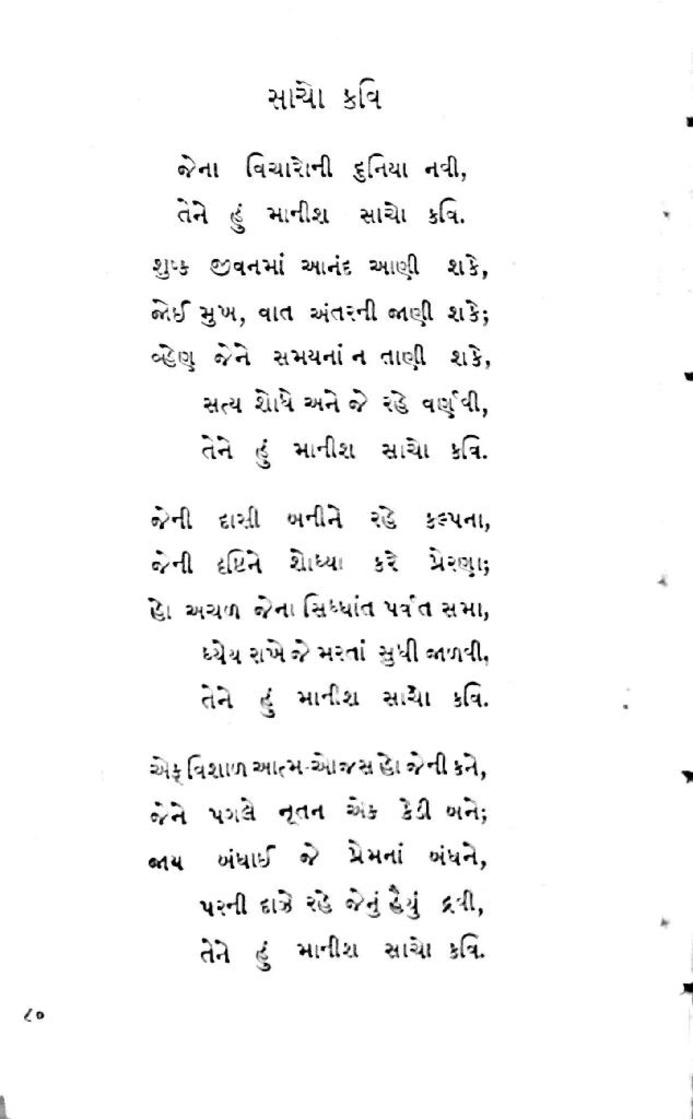 સાચો કવિ
જેના વિચારોની દુનિયા નવી,
તેને હું માનીશ સાચો કવિ.
શુષ્ક જીવનમાં આનંદ આણી શકે,
જોઈ મુખ, વાત અંતરની જાણી શકે;
વ્હેણ જેને સમયનાં ન તાણી શકે,
સત્ય શોધે અને જે રહે વર્ણવી,
તેને હું માનીશ સાચો કવિ.
જેની દાસી બનીને રહે કલ્પના,
જેની દૃષ્ટિને શોધ્યા કરે પ્રેરણા;
હો અચળ જેના સિધ્ધાંત પર્વત સમા,
ધ્યેય રાખે જે મરતાં સુધી જાળવી,
તેને હું માનીશ સાચો કવિ.
એક વિશાળ આત્મ-ઓજસ હો જેની કને,
જેને પગલે નૂતન એક કેડી બને;
જાય બંધાઈ જે પ્રેમનાં બંધને,
પરની દાઝે રહે જેનું હૈયું દ્રવી,
તેને હું માનીશ સાચો કવિ.
૮૦